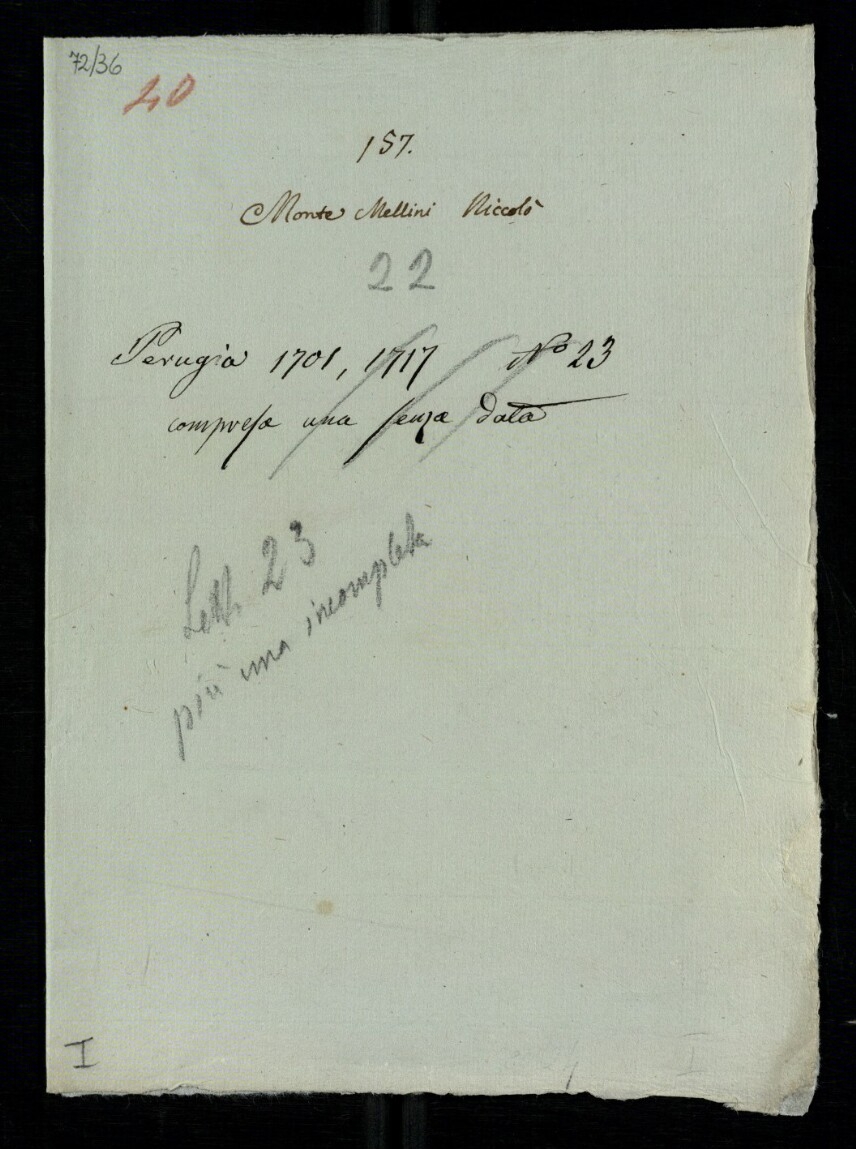 72/36
20
157.
Monte Mellini Niccolò
22
Perugia 1701, 1717 Nº 23
compresa una senza data
Lett. 23
più una incompleta
I